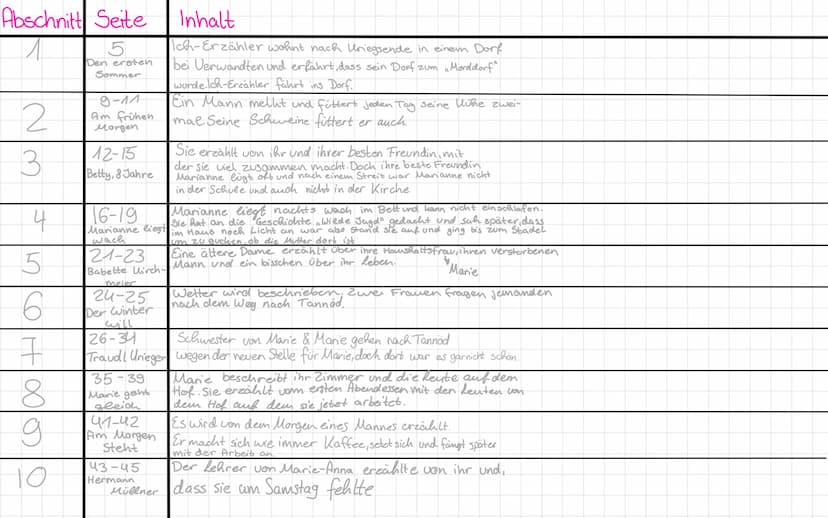 Abschnitt Seite Inhalt
1
5
Den ersten
Sommer
Ich-Erzähler wohnt nach Kriegsende in einem Dorf
bei Verwandten und erfährt, dass sein Dorf zum „Morddorf"
wurde. Ich-Erzähler fährt ins Dorf.
2
9-11
Am frühen
Morgen
Ein Mann melkt und füttert jeden Tag seine Kühe zwei-
mal. Seine Schweine füttert er auch
3
12-15
Betty, 8 Jahre
Sie erzählt von ihr und ihrer besten Freundin, mit
der sie viel zusammen macht. Doch ihre beste Freundin
Marianne lügt oft und nach einem Streit war Marianne nicht
in der Schule und auch nicht in der Kirche
4
16-19
Marianne liegt
wach
Marianne liegt nachts wach im Bett und kann nicht einschlafen.
Sie hat an die Geschichte „Wilde Jagd" gedacht und sah später, dass
im Haus noch Licht an war also stand sie auf und ging bis zum Stadel
um zu gucken, ob die Mutter dort ist
5
21-23
Babette Kirch-
meier
Eine ältere Dame erzählt über ihre Haushaltsfrau, ihren verstorbenen
Mann und ein bisschen über ihr Leben.
Marie
6
24-25
Der Winter
will
Wetter wird beschrieben, zwei Frauen fragen jemanden
nach dem Weg nach Tannöd.
7
26-34
Traudl Krieger
Schwester von Marie & Marie gehen nach Tannöd
wegen der neuen Stelle für Marie, doch dort war es garnicht schön
8
35-39
Marie geht
gleich
Marie beschreibt ihr Zimmer und die Leute auf dem
Hof. Sie erzählt vom ersten Abendessen mit den Leuten von
dem Hof auf dem sie jetzt arbeitet.
9
41-42
Am Morgen
steht
Es wird von dem Morgen eines Mannes erzählt.
Er macht sich wie immer Kaffee, setzt sich und fängt später
mit der Arbeit an.
10
43-45
Hermann
Müllner
Der Lehrer von Marie-Anna erzählte von ihr und,
dass sie am Samstag fehlte